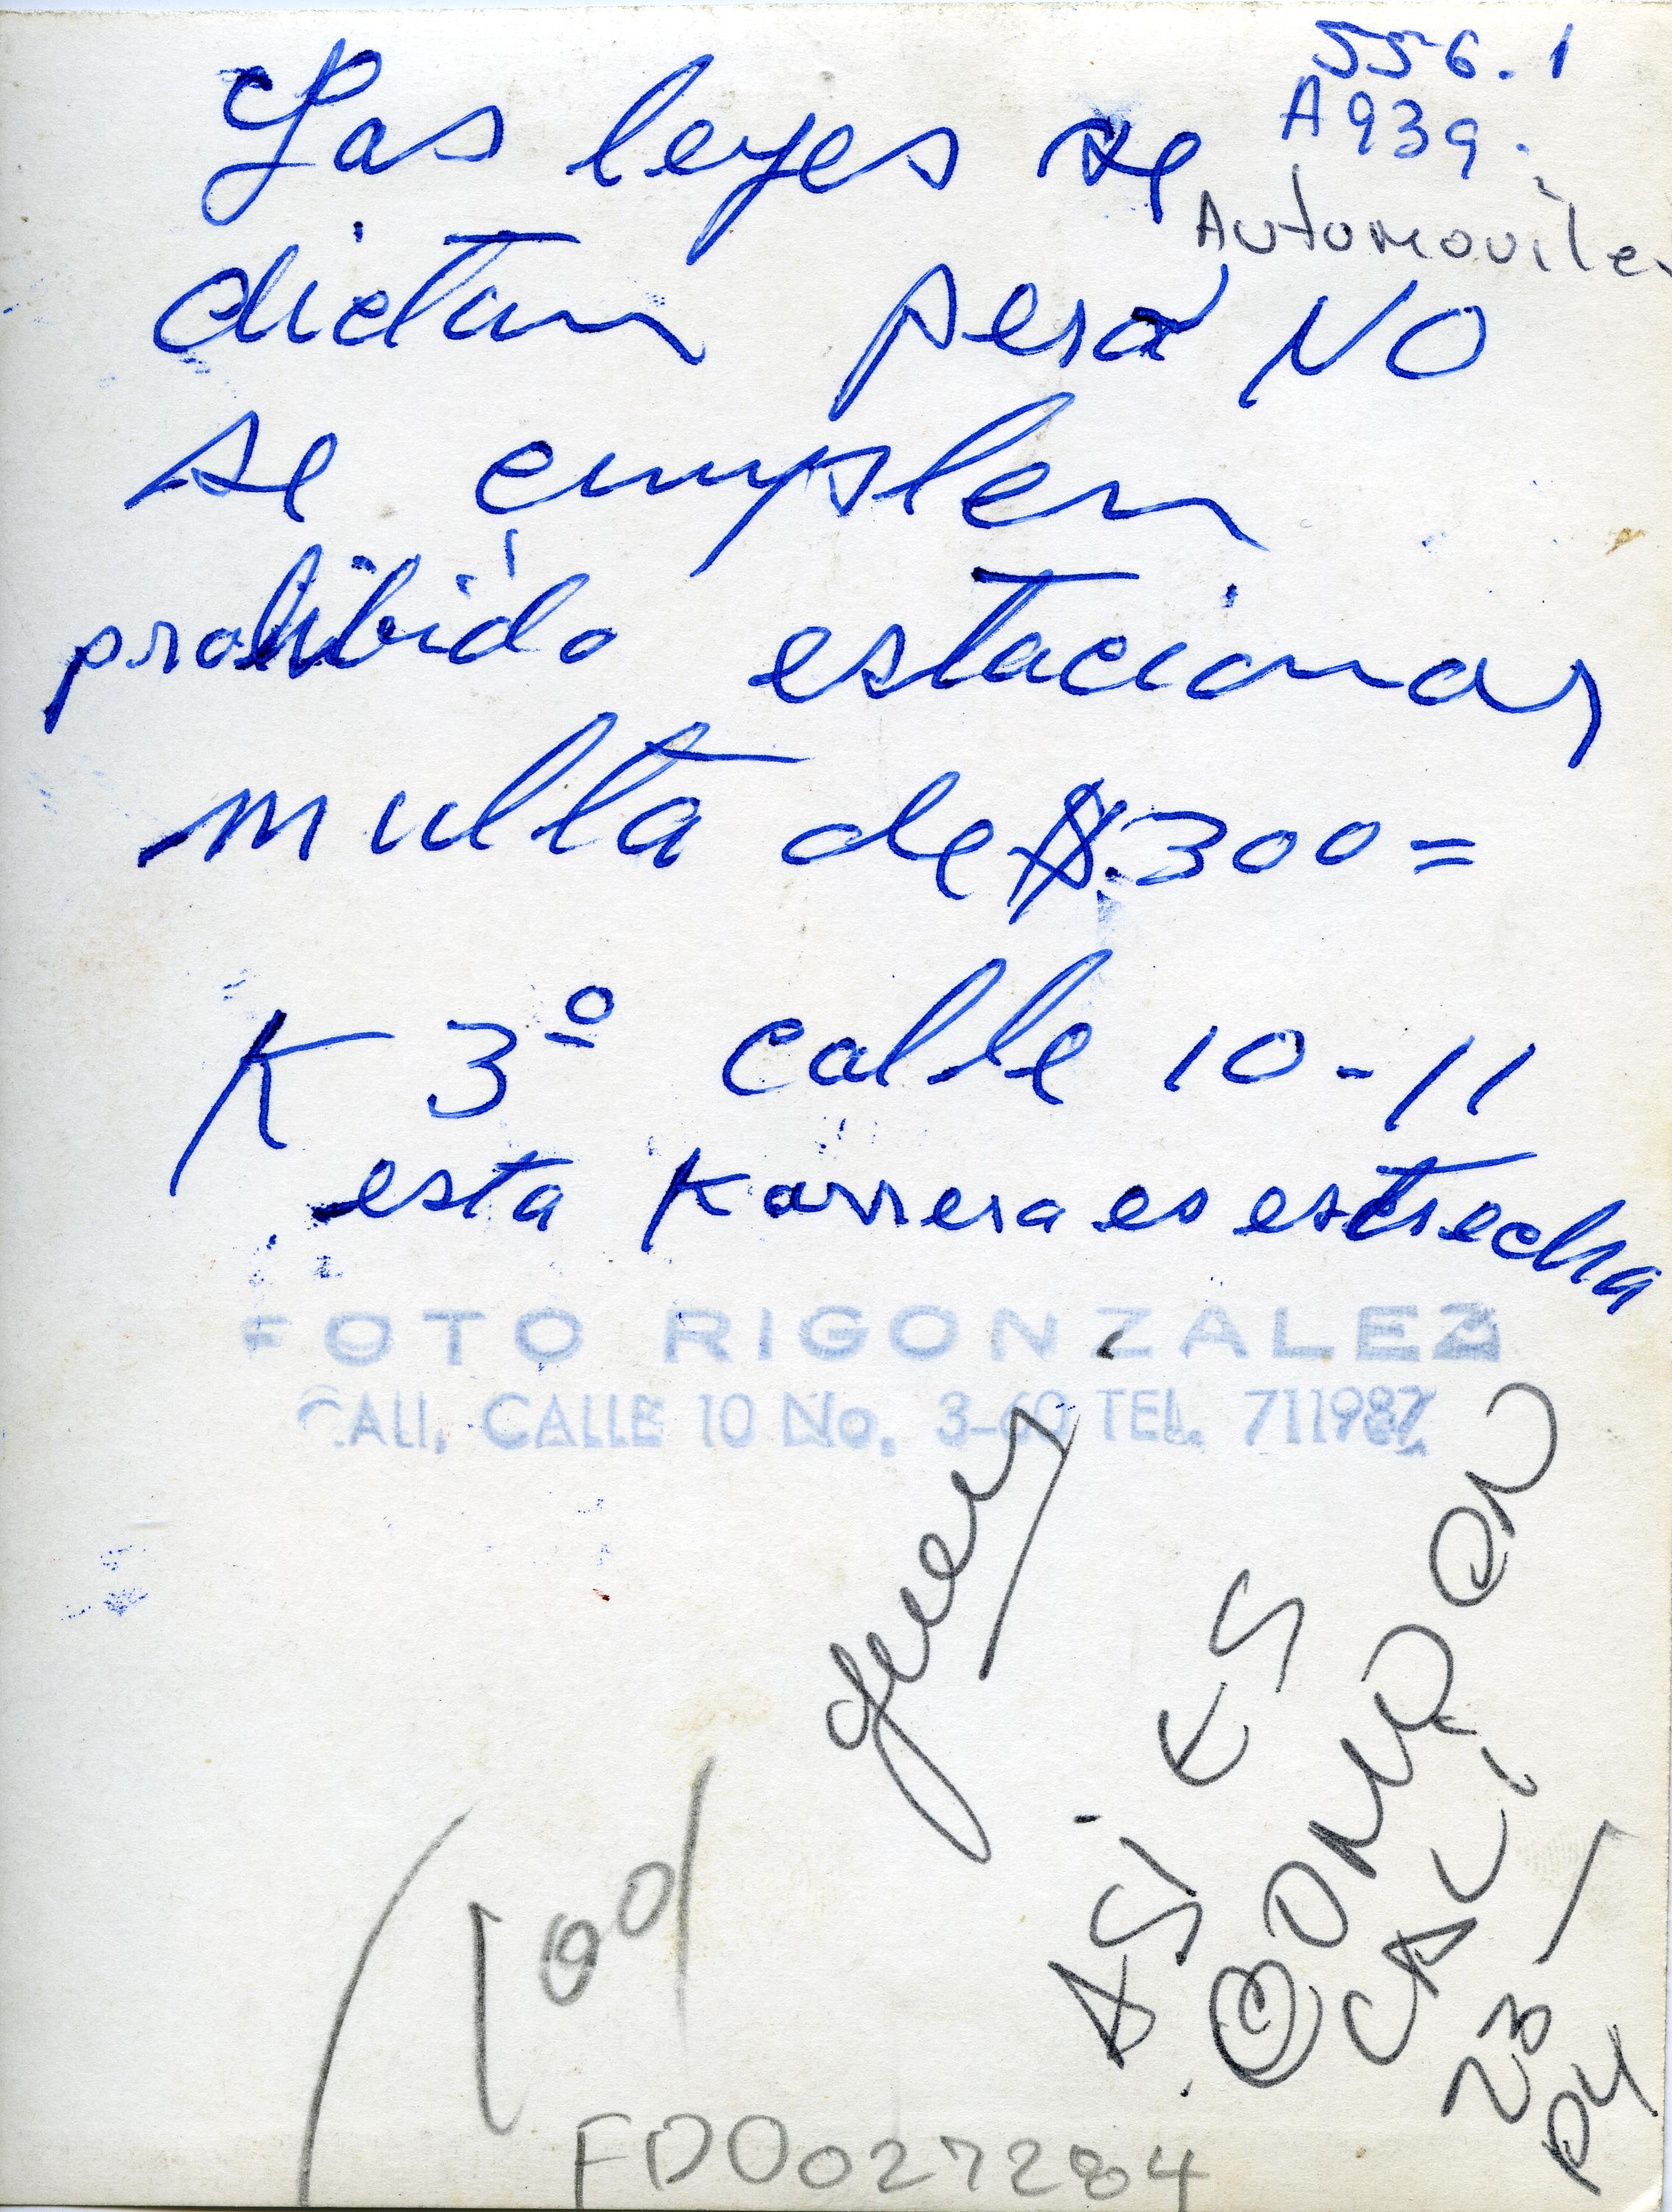 556.1
A939.
Automoviles
Las leyes se
dictan pero NO
se cumplen
prohibido estacionar
multa de $.300=
K 3º calle 10-11
esta Karrera es estrecha
FOTO RIGONZALEZ
CALI. CALLE 10 No. 3-60 TEL. 711987
ASI ES
CALI
23
P4
100
FD0027284